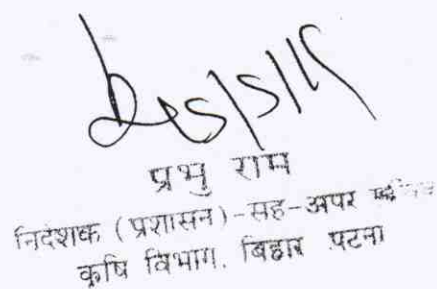 प्रभु राम
निदेशक (प्रशासन)-सह-अपर
कृषि विभाग, बिहार पटना